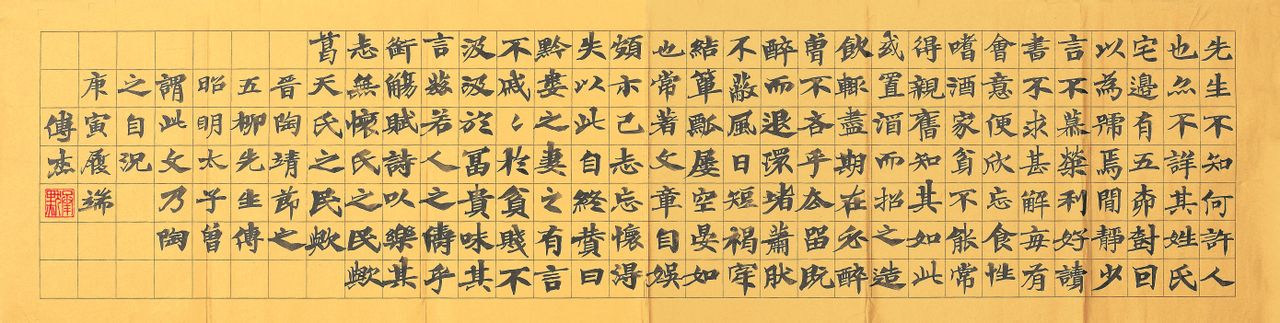 先生不知何許人
也尒不詳其姓氏
宅邊有五桺尌因
以為號焉閒靜少
言不慕榮利好讀
書不求甚解每有
會意便欣忘食性
嗜酒家貧不能常
得親舊知其如此
或置酒而招之造
飲輒盡期在必醉
曾不吝乎厺留既
醉而退環堵蕭肰
不蔽風日短褐穿
結簞瓢屢空晏如
也常著文章自娛
頗示己志忘懷得
失以此自終贊曰
黔婁之妻之有言
不戚〻於貧賤不
汲汲於冨貴味其
言茲若人之儔乎
銜觴賦詩以樂其
志無懷氏之民歟
葛天氏之民歟
晉陶靖節之
五柳先生傳
昭明太子曾
謂此文乃陶
之自況
庚寅履端
傅杰